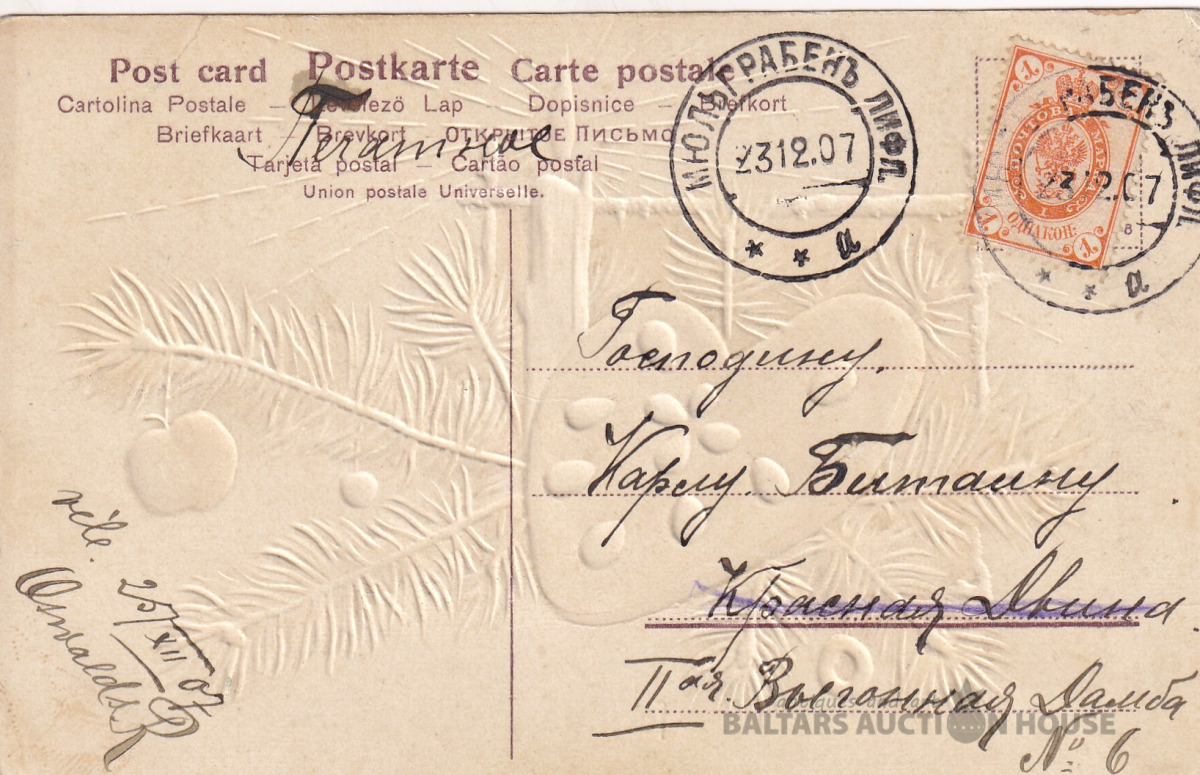 Post card Postkarte Carte postale
Cartolina Postale – Levelező Lap – Dopisnice – Briefkort
Briefkaart – Brevkort – ОТКРЫТОЕ ПИСЬМО
Tarjeta postal – Cartão postal
Union postale Universelle.
МЮЛЬГРАБЕНЪ ЛИФЛ.
23 12.07
а
РАБЕНЪ ЛИФЛ
23 12.07
а
1
ПОЧТОВ МАРК
1
ОДНА КОП:
1
8
Господину.
Карлу
Красная Двина.
II ая. Выгонная Дамба
№ 6
25/XII 07
BALTARS AUCTION HOUSE